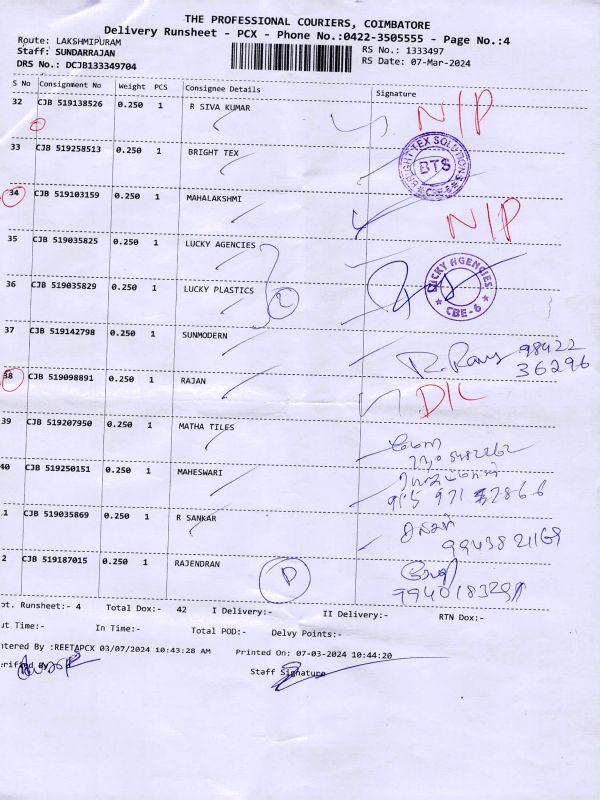 THE PROFESSIONAL COURIERS, COIMBATORE
Delivery Runsheet - PCX - Phone No.:0422-3505555 - Page No.:4
Route: LAKSHMIPURAM
Staff: SUNDARRAJAN
DRS No.: DCJB133349704
RS No.: 1333497
RS Date: 07-Mar-2024
S No Consignment No Weight PCS Consignee Details Signature
32 CJB 519138526 0.250 1 R SIVA KUMAR N/P
33 CJB 519258513 0.250 1 BRIGHT TEX
BRIGHT TEX SOLUTIONS BTS
34 CJB 519103159 0.250 1 MAHALAKSHMI N/P
35 CJB 519035825 0.250 1 LUCKY AGENCIES
36 CJB 519035829 0.250 1 LUCKY PLASTICS 2
LUCKY AGENCIES CBE-6
37 CJB 519142798 0.250 1 SUNMODERN 98422
36296
38 CJB 519098891 0.250 1 RAJAN D/L
39 CJB 519207950 0.250 1 MATHA TILES
40 CJB 519250151 0.250 1 MAHESWARI
1 CJB 519035869 0.250 1 R SANKAR
2 CJB 519187015 0.250 1 RAJENDRAN P
ot. Runsheet:- 4 Total Dox:- 42 I Delivery:- II Delivery:- RTN Dox:-
ut Time:- In Time:- Total POD:- Delvy Points:-
ntered By :REETAPCX 03/07/2024 10:43:28 AM Printed On: 07-03-2024 10:44:20
erified By Staff Signature